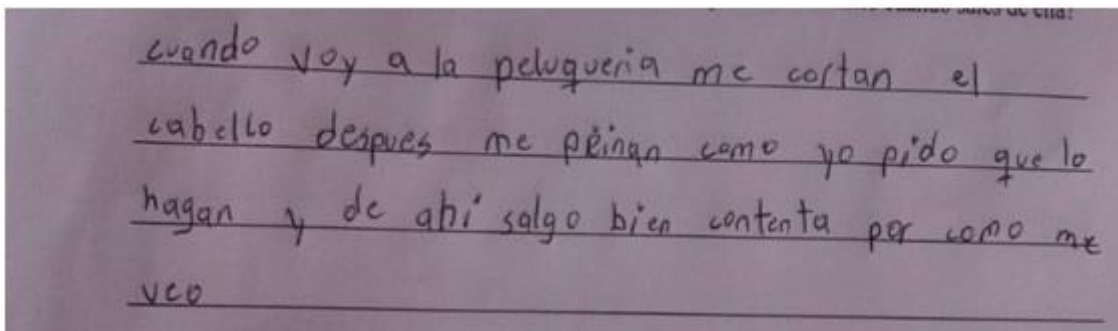 cuando sales de ella?
cuando voy a la peluqueria me cortan el
cabello despues me peinan como yo pido que lo
hagan y de ahi salgo bien contenta por como me
veo